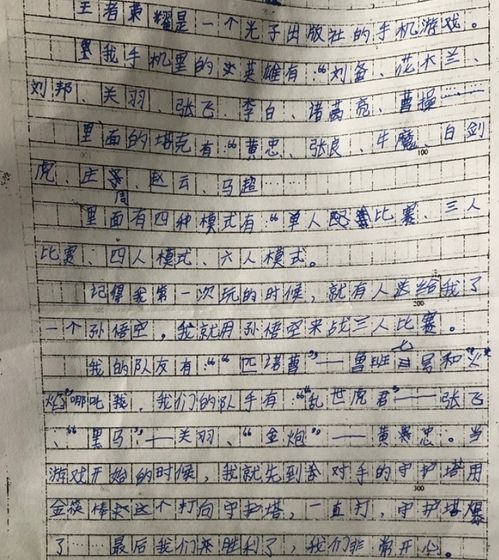 王者荣耀是一个光子出版社的手机游戏。
我手机里的英雄有:“刘备、花木兰、
刘邦、关羽、张飞、李白、诸葛亮、曹操……
里面的坦克有“黄忠、张良、牛魔、白剑
100
虎、庄周、赵云、马超……
里面有四种模式有“单人比赛、三人
比赛、四人模式、六人模式。
记得我第一次玩的时候,就有人送给我了
200
一个孙悟空,我就用孙悟空来战三人比赛。
我的队友有:““匹诺曹”——鲁班七号和“火
焰”哪吒,我们的队手有:“乱世虎君”——张飞
、“黑马”—关羽、“金炮”——黄忠。当
游戏开始的时候,我就先到对手的守护塔用
300
金箍棒这个打向守护塔,一直打,守护塔爆
了……最后我们胜利了,我们非常开心。